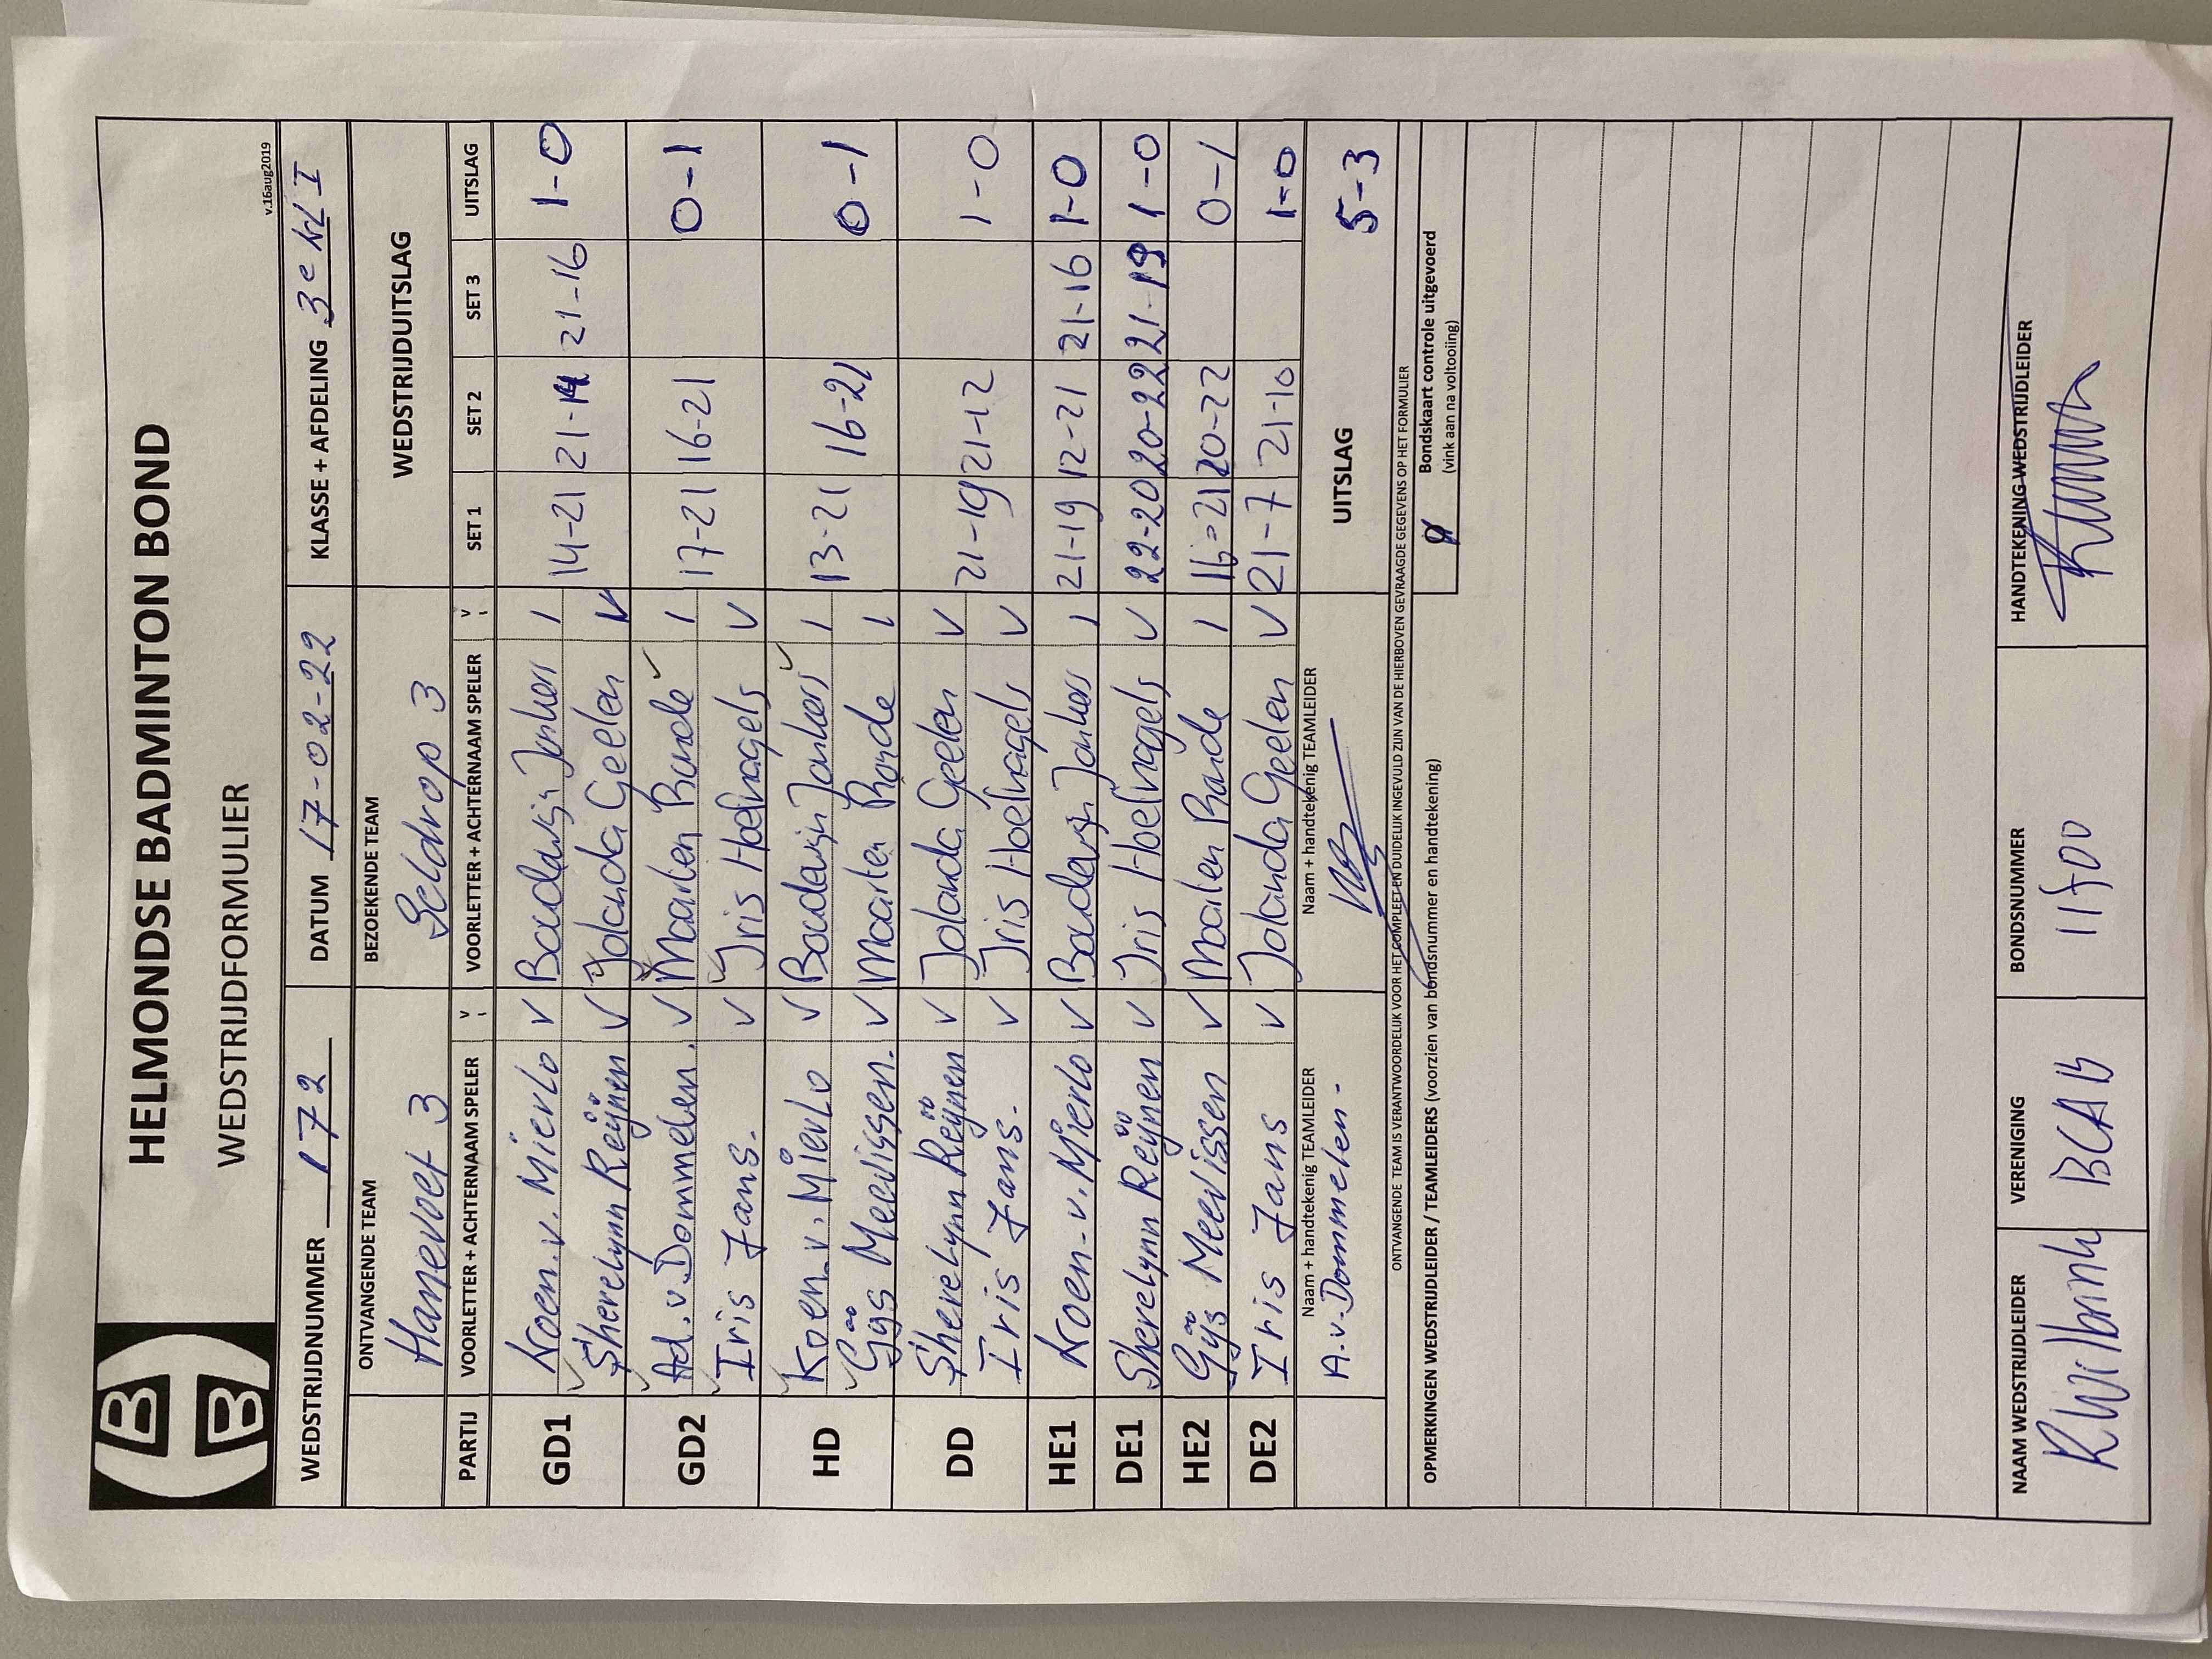 HELMONDSE BADMINTON BOND
WEDSTRIJDFORMULIER
v.16aug2019
WEDSTRIJDNUMMER 172 DATUM 17-02-22 KLASSE + AFDELING 3e KL I
ONTVANGENDE TEAM BEZOEKENDE TEAM WEDSTRIJDUITSLAG
Hanevoet 3 Geldrop 3
PARTIJ VOORLETTER + ACHTERNAAM SPELER V VOORLETTER + ACHTERNAAM SPELER V SET 1 SET 2 SET 3 UITSLAG
GD1 Koen v. Mierlo V Boudewijn Jonkers / 14-21 21-14 21-16 1-0
Sherelynn Reijnen V Jolanda Geelen V
GD2 Ad. v. Dommelen. V Maarten Bonde / 17-21 16-21 0-1
Iris Jans. V Iris Hoefnagels V
HD Koen v. Mierlo V Boudewijn Jonkers / 13-21 16-21 0-1
Gijs Meevissen. V Maarten Bonde /
DD Sherelynn Reijnen V Jolanda Geelen V 21-19 21-12 1-0
Iris Jans. V Iris Hoefnagels V
HE1 Koen v. Mierlo V Boudewijn Jonkers / 21-19 12-21 21-16 1-0
DE1 Sherelynn Reijnen V Iris Hoefnagels V 22-20 20-22 21-19 1-0
HE2 Gijs Meevissen V Maarten Bonde / 16-21 20-22 0-1
DE2 Iris Jans V Jolanda Geelen V 21-7 21-10 1-0
Naam + handtekenig TEAMLEIDER Naam + handtekenig TEAMLEIDER UITSLAG 5-3
A.v.Dommelen-
ONTVANGENDE TEAM IS VERANTWOORDELIJK VOOR HET COMPLEET EN DUIDELIJK INGEVULD ZIJN VAN DE HIERBOVEN GEVRAAGDE GEGEVENS OP HET FORMULIER
OPMERKINGEN WEDSTRIJDLEIDER / TEAMLEIDERS (voorzien van bondsnummer en handtekening)
Bondskaart controle uitgevoerd
(vink aan na voltooiing)
NAAM WEDSTRIJDLEIDER VERENIGING BONDSNUMMER HANDTEKENING WEDSTRIJDLEIDER
R Wilbrink BCAB 11500